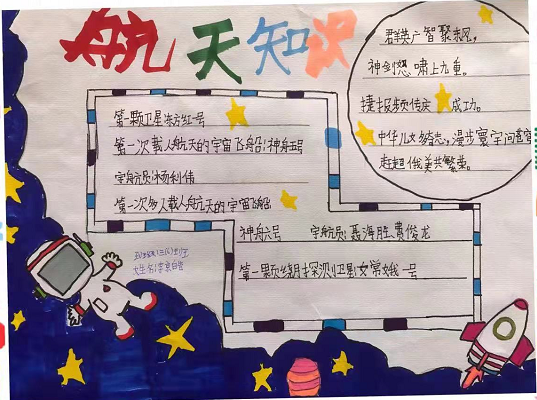 航天知识
群英广智聚东风，
神剑怒啸上九重。
捷报频传庆成功。
中华儿女多奇志，漫步寰宇问苍穹
赶超俄美共繁荣。
第一颗卫星：东方红一号
第一次载人航天的宇宙飞船：神舟五号
宇航员：杨利伟
第一次多人载人航天的宇宙飞船
神舟六号 宇航员：聂海胜、费俊龙
第一颗绕月探测卫星：嫦娥一号